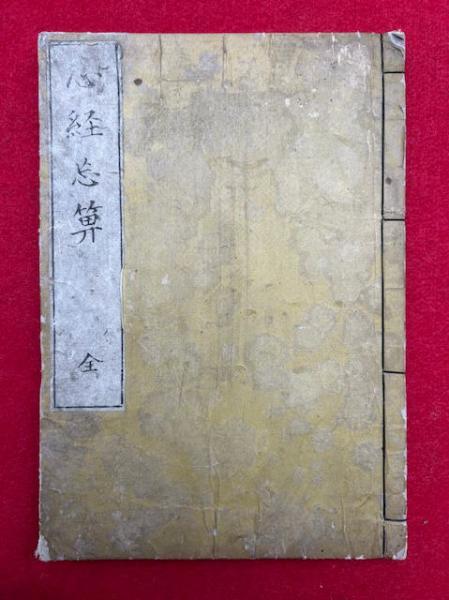 心経忘筭
全